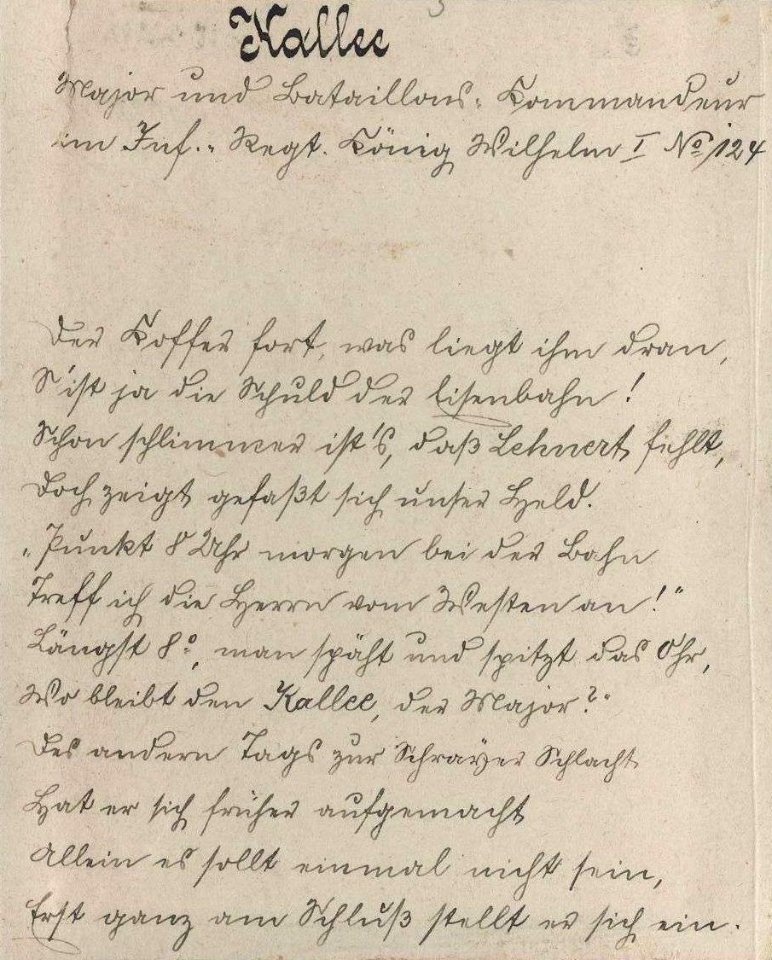 Kallee
Major und Bataillons-Kommandeur
im Inf.-Regt. König Wilhelm I No 124
Der Koffer fort, was liegt ihm dran,
S'ist ja die Schuld der Eisenbahn!
Schon schlimmer ist's, daß Lehnert fehlt,
Doch zeigt gefaßt sich unser Held.
„Punkt 8 Uhr morgen bei der Bahn
Treff ich die Herrn vom Westen an!"
Längst 8°, man späht und spitzt das Ohr,
Wo bleibt den Kallee, der Major?"
Des andern Tags zur Schlacht
Hat er sich früher aufgemacht
Allein es sollt einmal nicht sein,
Erst ganz am Schluß stellt er sich ein.